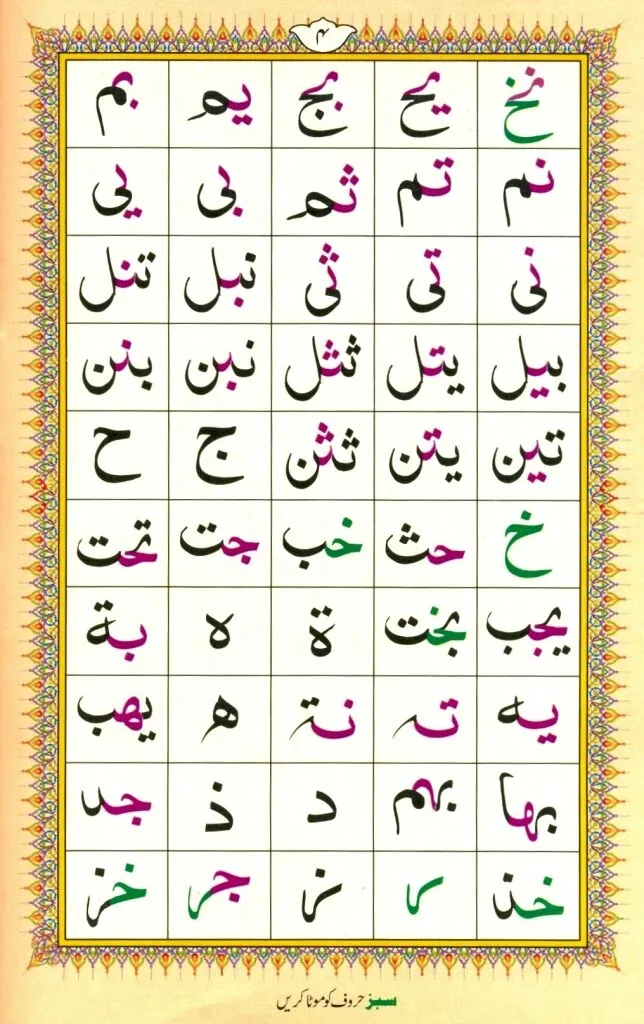 ۴
نخ يح بج يم بم
نم تم ثم بی یی
نی تی ثی نبل تنل
بیل یتل ثثل نبن بنن
تین یتن ثثن ج ح
خ حث خب جت تحت
یجب بخت ة ه بة
یه ته نة ه یهب
بها بهم د ذ جد
خذ ر ز جر خز
سبز حروف کو موٹا کریں